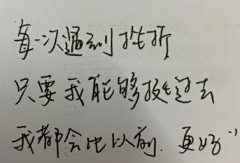 每一次遇到挫折
只要我能够挨过去
我都会比以前.更好"